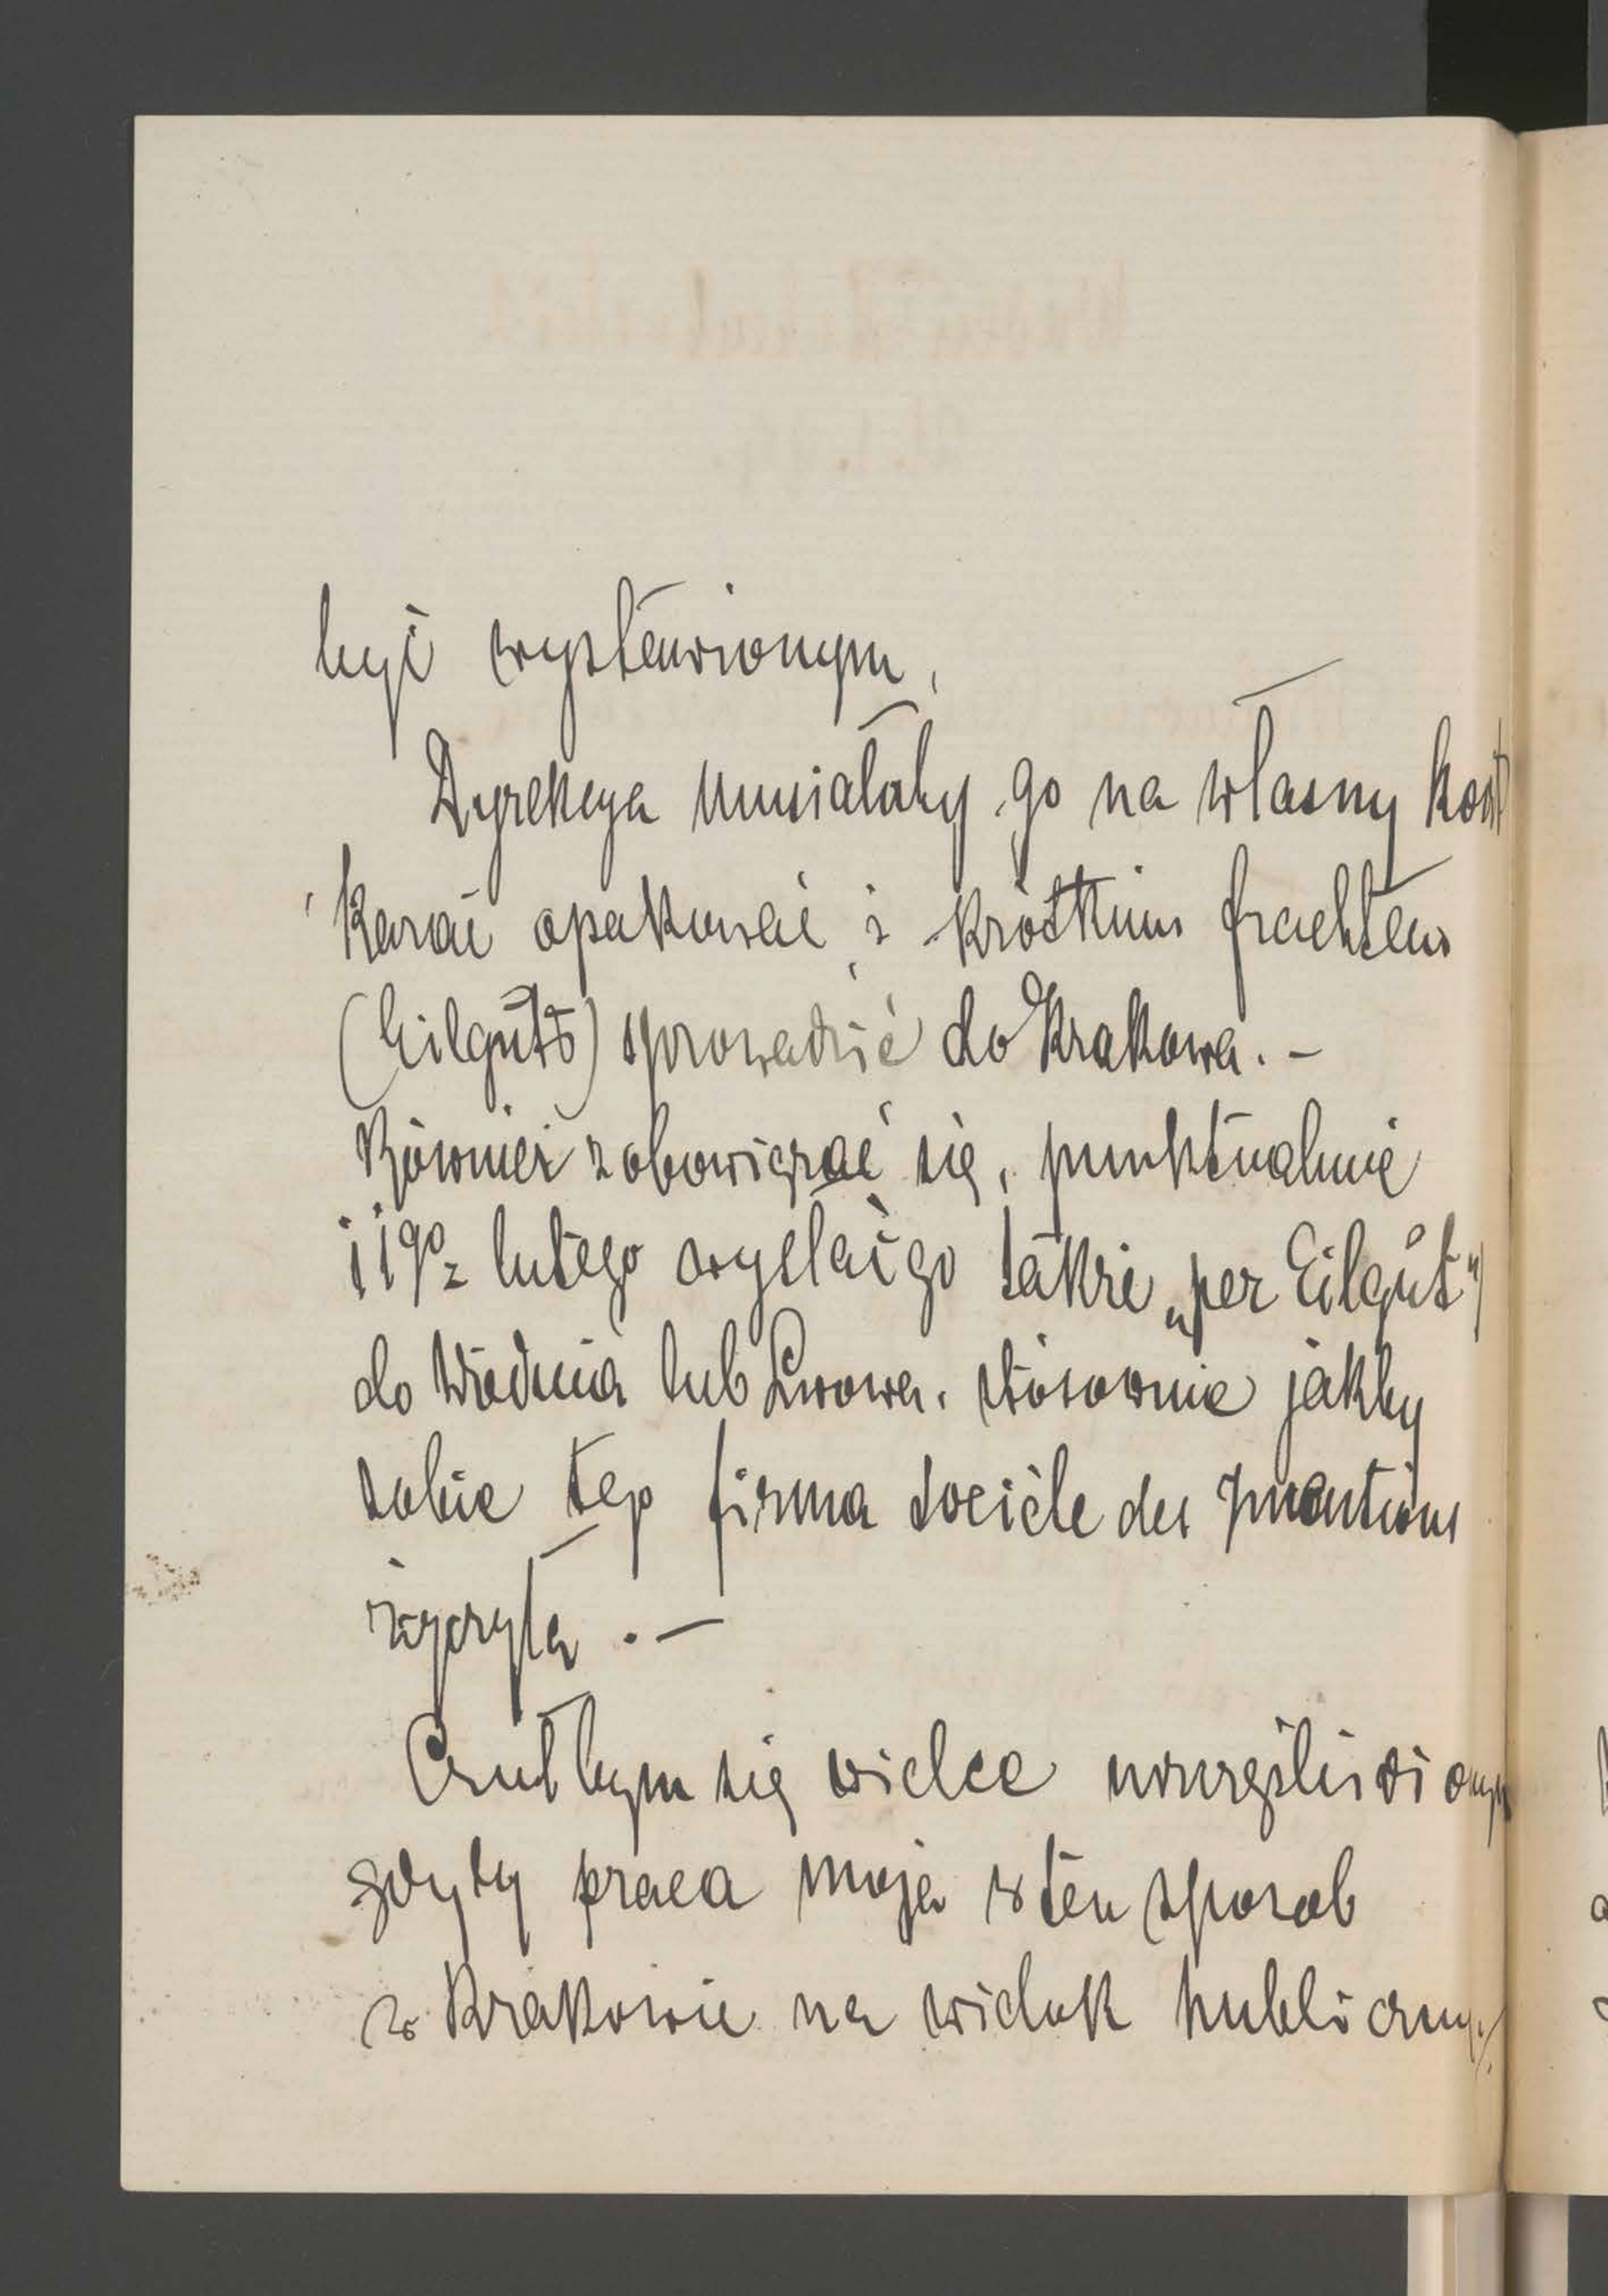 być wystawionym,
Dyrekcya musiałaby go na własny koszt
kazać opakować i krótkim frachtem
(Eilgut) sprowadzić do Krakowa. –
Również zobowiązać się, punktualnie
lutego wysłać go także „per Eilgut"
do Wiednia lub Lwowa. stósownie jakby
sobie tego firma Société des Inventions
życzyła . –
Czułbym się wielce uszczęśliwionym
gdyby praca moja w ten sposób
w Krakowie na widok publiczny